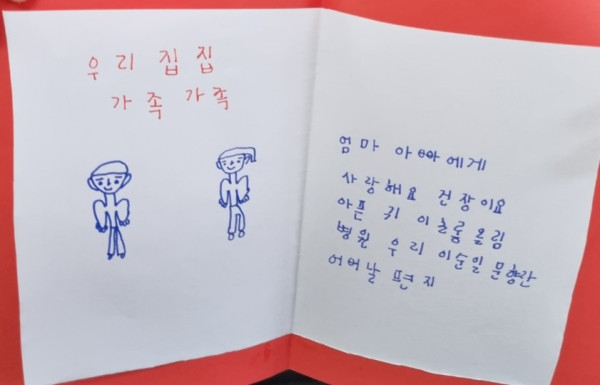 우리 집 집
가족 가족
엄마 아빠에게
사랑해요 건장이요
아픈 키 이 올림
병원 우리 이순일 문형란
어어날 편지